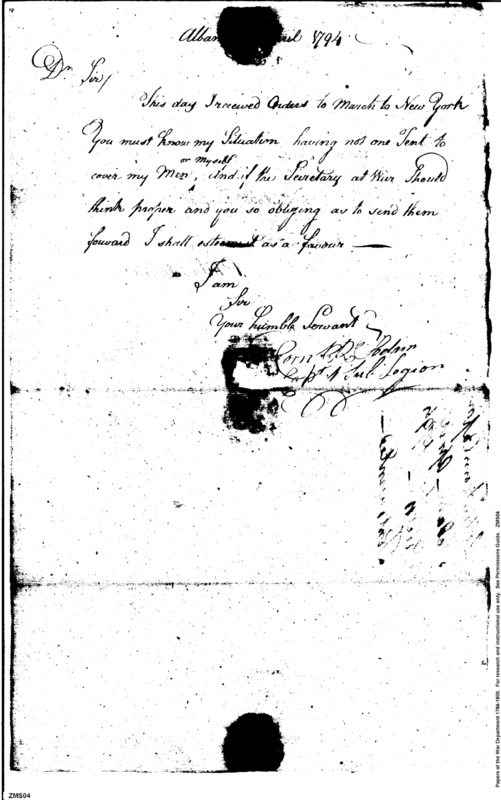 Alban[...]il 1794
Dr Sir/
This day I received Orders to March to New York
You must know my Situation having not one Tent to
or myself
cover my Men, And if the Secretary at War Should
think proper and you so obliging as to send them
forward I shall esteem it as a favour —
I am
Sir
Your humble Servant
Corn
Capt 4 Sub Legion
Papers of the War Department 1784-1800. For research and instructional use only. See Permissions Guide. ZMS04
ZMS04